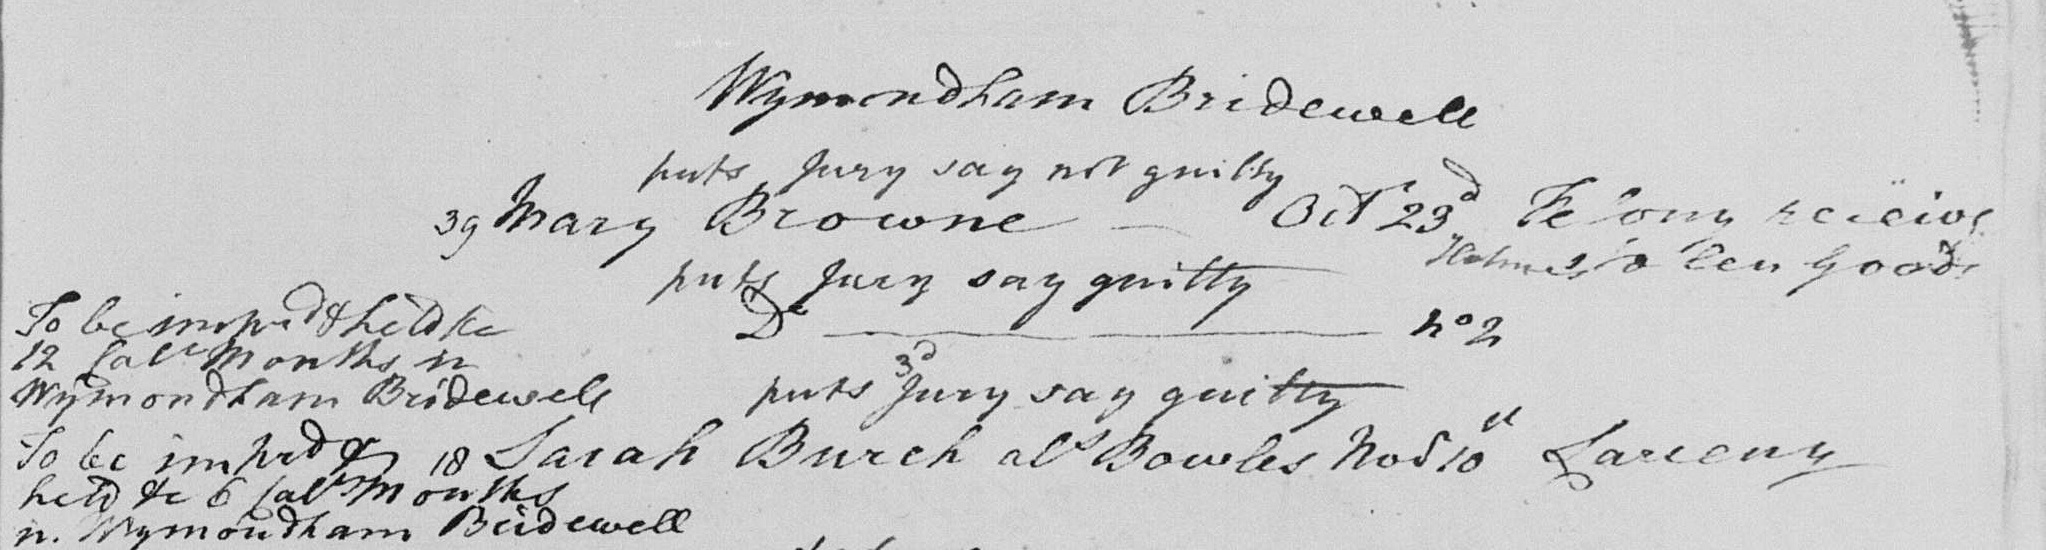 Wymondham Bridewell
puts Jury say not guilty
39 Mary Browne — Octr 23d Felony receivg
stolen Goods
puts Jury say guilty
Do — no 2
To be imprd & held &c
12 Calr Months in
Wymondham Bridewell
puts 3d Jury say guilty
18 Sarah Burch als Bowles Novr 10th Larceny
To be imprd &
held &c 6 Calr Months
in Wymondham Bridewell